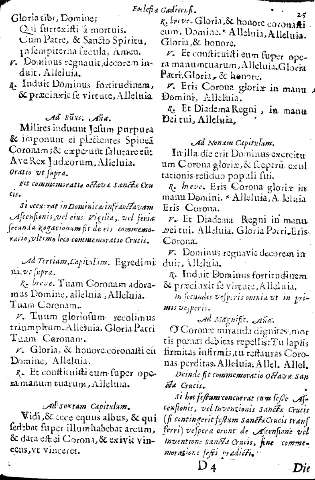 Ecclesiæ Gaditanæ. 25
Gloria tibi, Domine,
Qui surrexisti à mortuis,
Cum Patre, & Sancto Spiritu,
In sempiterna sæcula, Amen.
℣. Dominus regnavit, decorem in-
duit, Alleluia.
℟. Induit Dominus fortitudinem,
& præcinxit se virtute, Alleluia
Ad Bñus. Aña.
Milites induunt Jesum purpura
& imponunt ei plectentes Spineã
Coronam & cæperunt salutare eũ:
Ave Rex Judæorum, Alleluia.
Oratio ut supra.
Fit commemoratio octavæ Sanctæ Cru
cis.
Si occurrat in Dominica infraoctavam
Ascensionis, vel eius Vigilia, vel feria
secunda Rogationum fit de eis commemo-
ratio, ultimo loco commemoratio Crucis.
Ad Tertiam, Capitulum. Egredimi
ni ut supra.
℟. breve. Tuam Coronam adora-
mus Domine, alleluia, Alleluia.
Tuam Coronam.
℣. Tuum gloriosum recolimus
triumphum. Alleluia. Gloria Patri
Tuam Coronam.
℣. Gloria, & honore coronasti eũ
Domine, Alleluia.
℟. Et constituisti eum super ope-
ra manuum tuarum, Alleluia.
Ad sextam Capitulum.
Vidi, & ecce equus albus, & qui
sedebat super illum habebat arcum,
& data est ei Corona, & exivit vin-
cens, ut vinceret.
℟. breve. Gloria, & honore coronasti
eum, Domine. * Alleluia, Alleluia.
Gloria, & honore.
℣. Et constituisti eum super ope-
ra manuum tuarum, Alleluia. Gloria
Patri, Gloria, & honore.
℣. Eris Corona gloriæ in manu
Domini, Alleluia.
℟. Et Diadema Regni, in manu
Dei tui, Alleluia,
Ad Nonam Capitulum.
In illa die erit Dominus exercitu
um Corona gloriæ, & sertum exul
tationis residuo populi sui.
℟. breve. Eris Corona gloriæ in
manu Domini. * Alleluia, Alleluia
Eris Corona.
℣. Et Diadema Regni in manu
Dei tui. Alleluia. Gloria Patri. Eris
Corona.
℣. Dominus regnavit decorem in-
duit, Alleluia.
℟. Induit Dominus fortitudinem
& præcinxit se virtute, Alleluia.
In secundis vesperis omnia ut in pri-
mis vesperis.
Ad Magnific. Aña.
O Coronæ miranda dignitas, mor
tis portat debitas repellis: Tu lapsis
firmitas infirmis, tu restauras Coro-
nas perditas. Alleluia, Allel. Allel.
Deinde fit commemoratio Octavæ San
ctæ Crucis.
Si hoc festum concurrat cum festo As-
censionis, vel Inventionis Sanctæ Crucis
(si contingerit festum Sanctæ Crucis trans
ferri) vespera erunt de Ascensione vel
Inventione Sanctæ Crucis, sine comme-
moratione festi prædicti.
D 4 Die